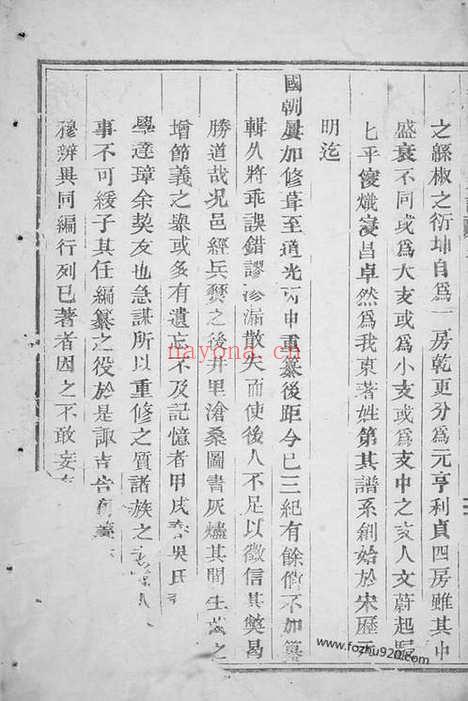 之緜椒之衍坤自爲一房乾更分爲元亨利貞四房雖其中
盛衰不同或爲大支或爲小支或爲支中之支人文蔚起
七平寖熾寖昌卓然爲我東著姓第其譜系創始於宋歷
明迄
國朝屢加修葺至道光丙申重纂後距今已三紀有餘倘不加纂
輯久將乖誤錯謬滲漏散失而使後人不足以徵信其奬曷
勝道哉况邑經兵燹之後井里滄桑圖書灰燼其間生歲之
增節義之槩或多有遺忘不及記憶者甲戌吳氏
學達璋余契友也急謀所以重修之質諸族之
事不可緩子其任編纂之役於是諏吉告
穆辨異同編行列已著者因之不敢妄
nayona.cn
www.fozhu920.com